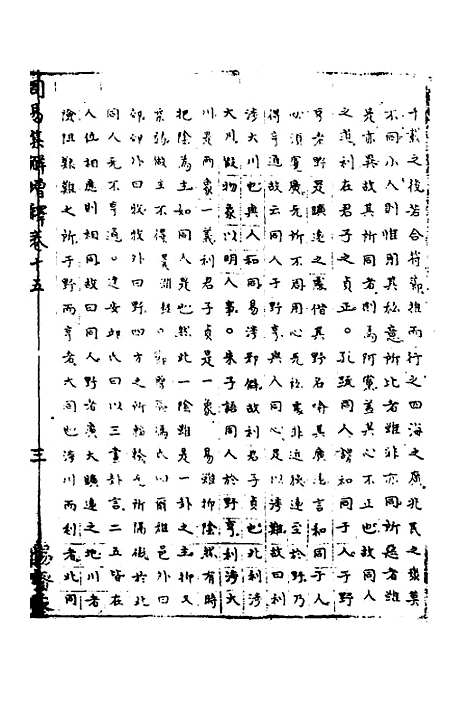 千載之後若合符節推而行之四海之廣兆民之衆莫
不同小人則惟用其私意所比者雖非亦同所惡者雖
是亦異故其所同者則為阿黨蓋其心不正也故同人
之道利在君子之貞正。孔疏同人謂和同于人于野
亨者野是曠遠之處借其野名喻其廣遠言和同于人
必須寬廣无所不同用心无私處非近狹遠至於野乃
得亨通故云同人于野亨與人同心足以涉難故曰利
涉大川也與人和同易涉邪僻故利君子貞也此利涉
大川假物象以明人事。朱子語同人於野亨利涉大
川是兩象一義利君子貞是一象 易雖抑陰然有時
把陰為主如同人是也然此一陰雖是一卦之主抑又
柔弱做主不得 馮氏 曰爾雅邑外曰
郊郊外曰牧牧外曰野四方之所輻輳无所隔礙於此
同人无不亨通。建安邱氏曰以三畫卦言二五皆在
人位相應則相同故曰同人野者廣大曠遠之地川者
險阻艱難之所于野而亨者大同也涉川而利者北同
周易集解增釋卷十五
三